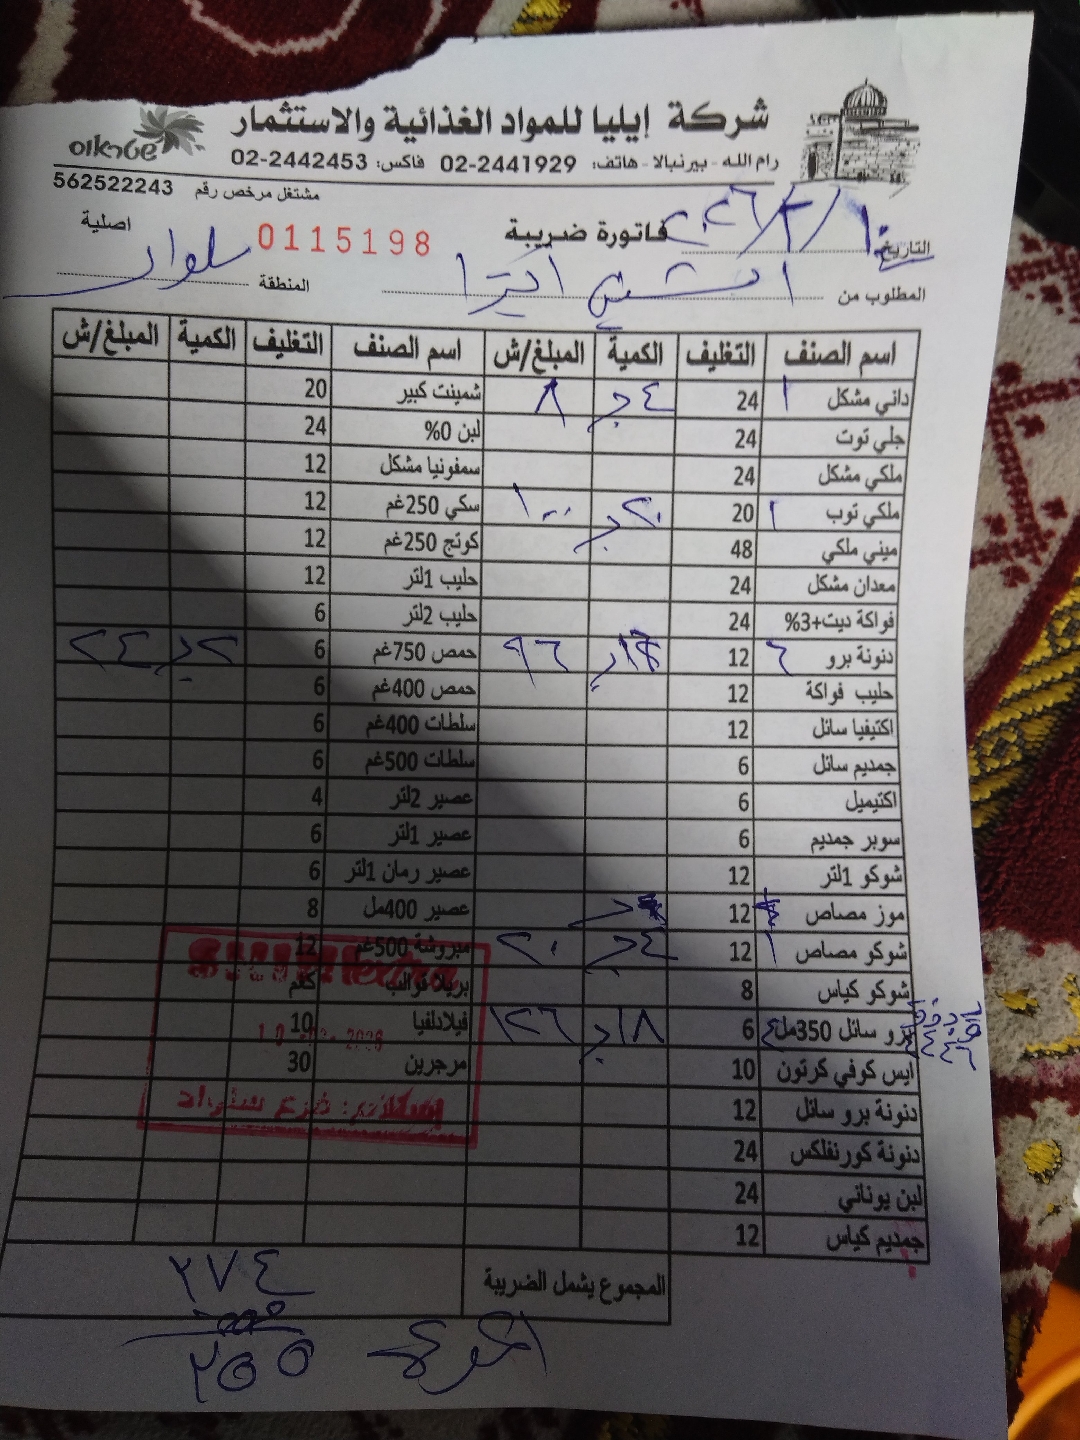 شركة إيليا للمواد الغذائية والاستثمار
رام الله - بيرنبالا - هاتف: 02-2441929 فاكس: 02-2442453
שטראוס
مشتغل مرخص رقم 562522243
التاريخ ١٠/٢/٢٠٢٦ فاتورة ضريبة 0115198 اصلية
المطلوب من المنطقة سلواد
اسم الصنف التغليف الكمية المبلغ/ش اسم الصنف التغليف الكمية المبلغ/ش
داني مشكل ١ 24 ٤ جـ ٨ شمينت كبير 20
جلي توت 24 لبن 0% 24
ملكي مشكل 24 سمفونيا مشكل 12
ملكي توب ١ 20 ٢٠ جـ ١٠٠ سكي 250غم 12
ميني ملكي 48 كوتج 250غم 12
معدان مشكل 24 حليب 1لتر 12
فواكة ديت+3% 24 حليب 2لتر 6
دنونة برو ٦ 12 ٩٦ حمص 750غم 6 ٢ جـ ٢٤
حليب فواكة 12 حمص 400غم 6
اكتيفيا سائل 12 سلطات 400غم 6
جمديم سائل 6 سلطات 500غم 6
اكتيميل 6 عصير 2لتر 4
سوبر جمديم 6 عصير 1لتر 6
شوكو 1لتر 12 عصير رمان 1لتر 6
موز مصاص 12 عصير 400مل 8
شوكو مصاص ١ 12 ٤ جـ ٢٠ مبروشة 500غم 12
شوكو كياس 8 بريلا قوالب كغم
برو سائل 350مل ٤ 6 ١٨ جـ ١٢٦ فيلادلفيا 10
ايس كوفي كرتون 10 مرجرين 30
دنونة برو سائل 12
دنونة كورنفلكس 24
لبن يوناني 24
جمديم كياس 12
فرع سلواد
المجموع يشمل الضريبة ٢٧٤
٢٥٥